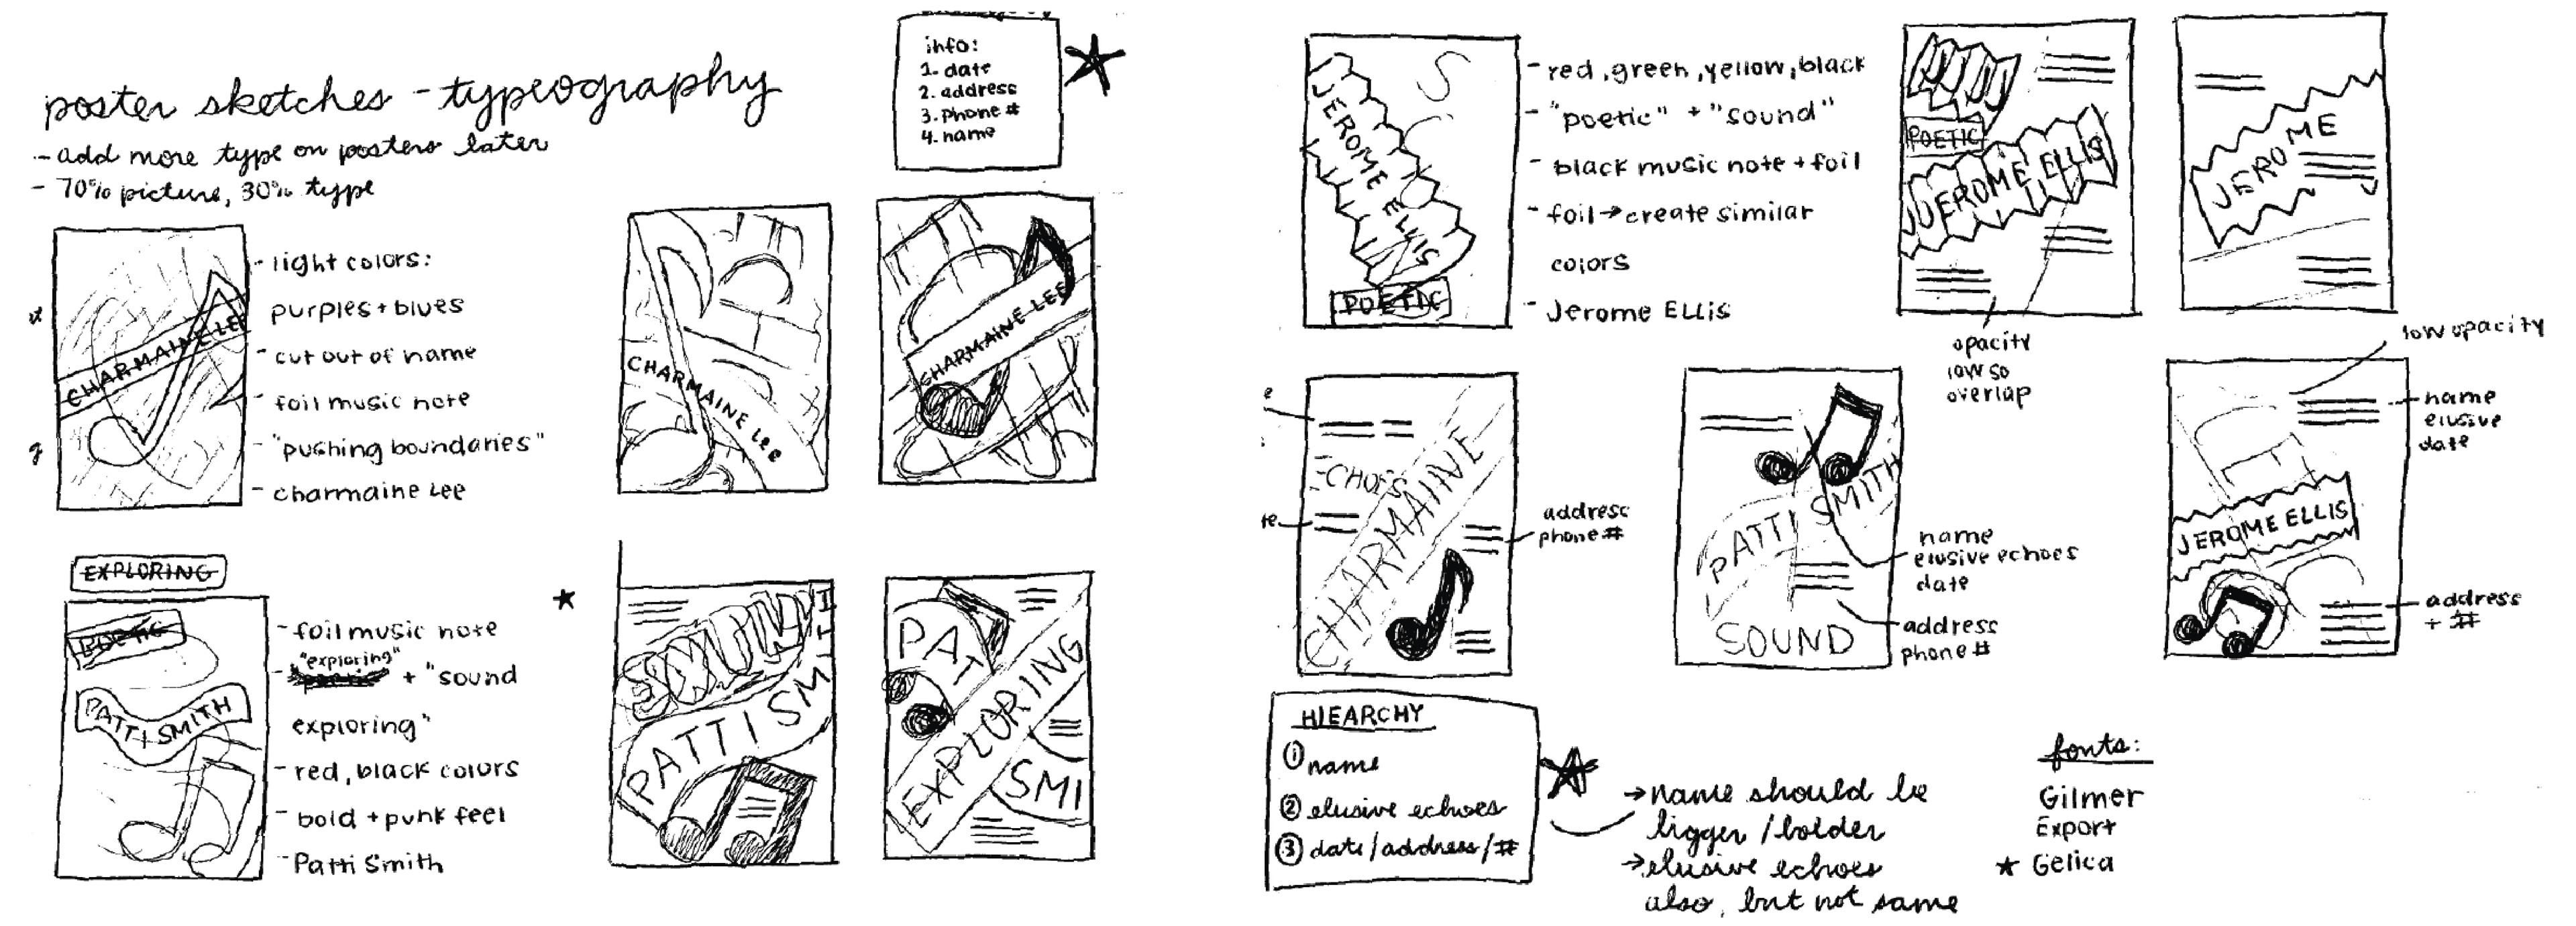 poster sketches - typeography
- add more type on posters later
- 70% picture, 30% type
info:
1. date
2. address
3. phone #
4. name
CHARMAINE LEE
- light colors:
purples + blues
- cut out of name
- foil music note
- "pushing boundaries"
- charmaine Lee
CHARMAINE Lee
CHARMAINE LEE
EXPLORING
POETIC
PATTI SMITH
- foil music note
"exploring"
- + "sound
exploring"
- red, black colors
- bold + punk feel
- Patti Smith
SOUND
PATTI SMITH
PATTI
EXPLORING
SMI
JEROME ELLIS
POETIC
- red, green, yellow, black
- "poetic" + "sound"
- black music note + foil
- foil → create similar
colors
- Jerome Ellis
POETIC
JEROME ELLIS
opacity
low so
overlap
JEROME
ECHOES
CHARMAINE
address
phone #
PATTI SMITH
SOUND
name
elusive echoes
date
address
phone #
low opacity
name
elusive
date
JEROME ELLIS
address
+ #
HIEARCHY
① name
② elusive echoes
③ date/address/#
→ name should be
bigger/bolder
→ elusive echoes
also, but not same
fonts:
Gilmer
Export
★ Gelica